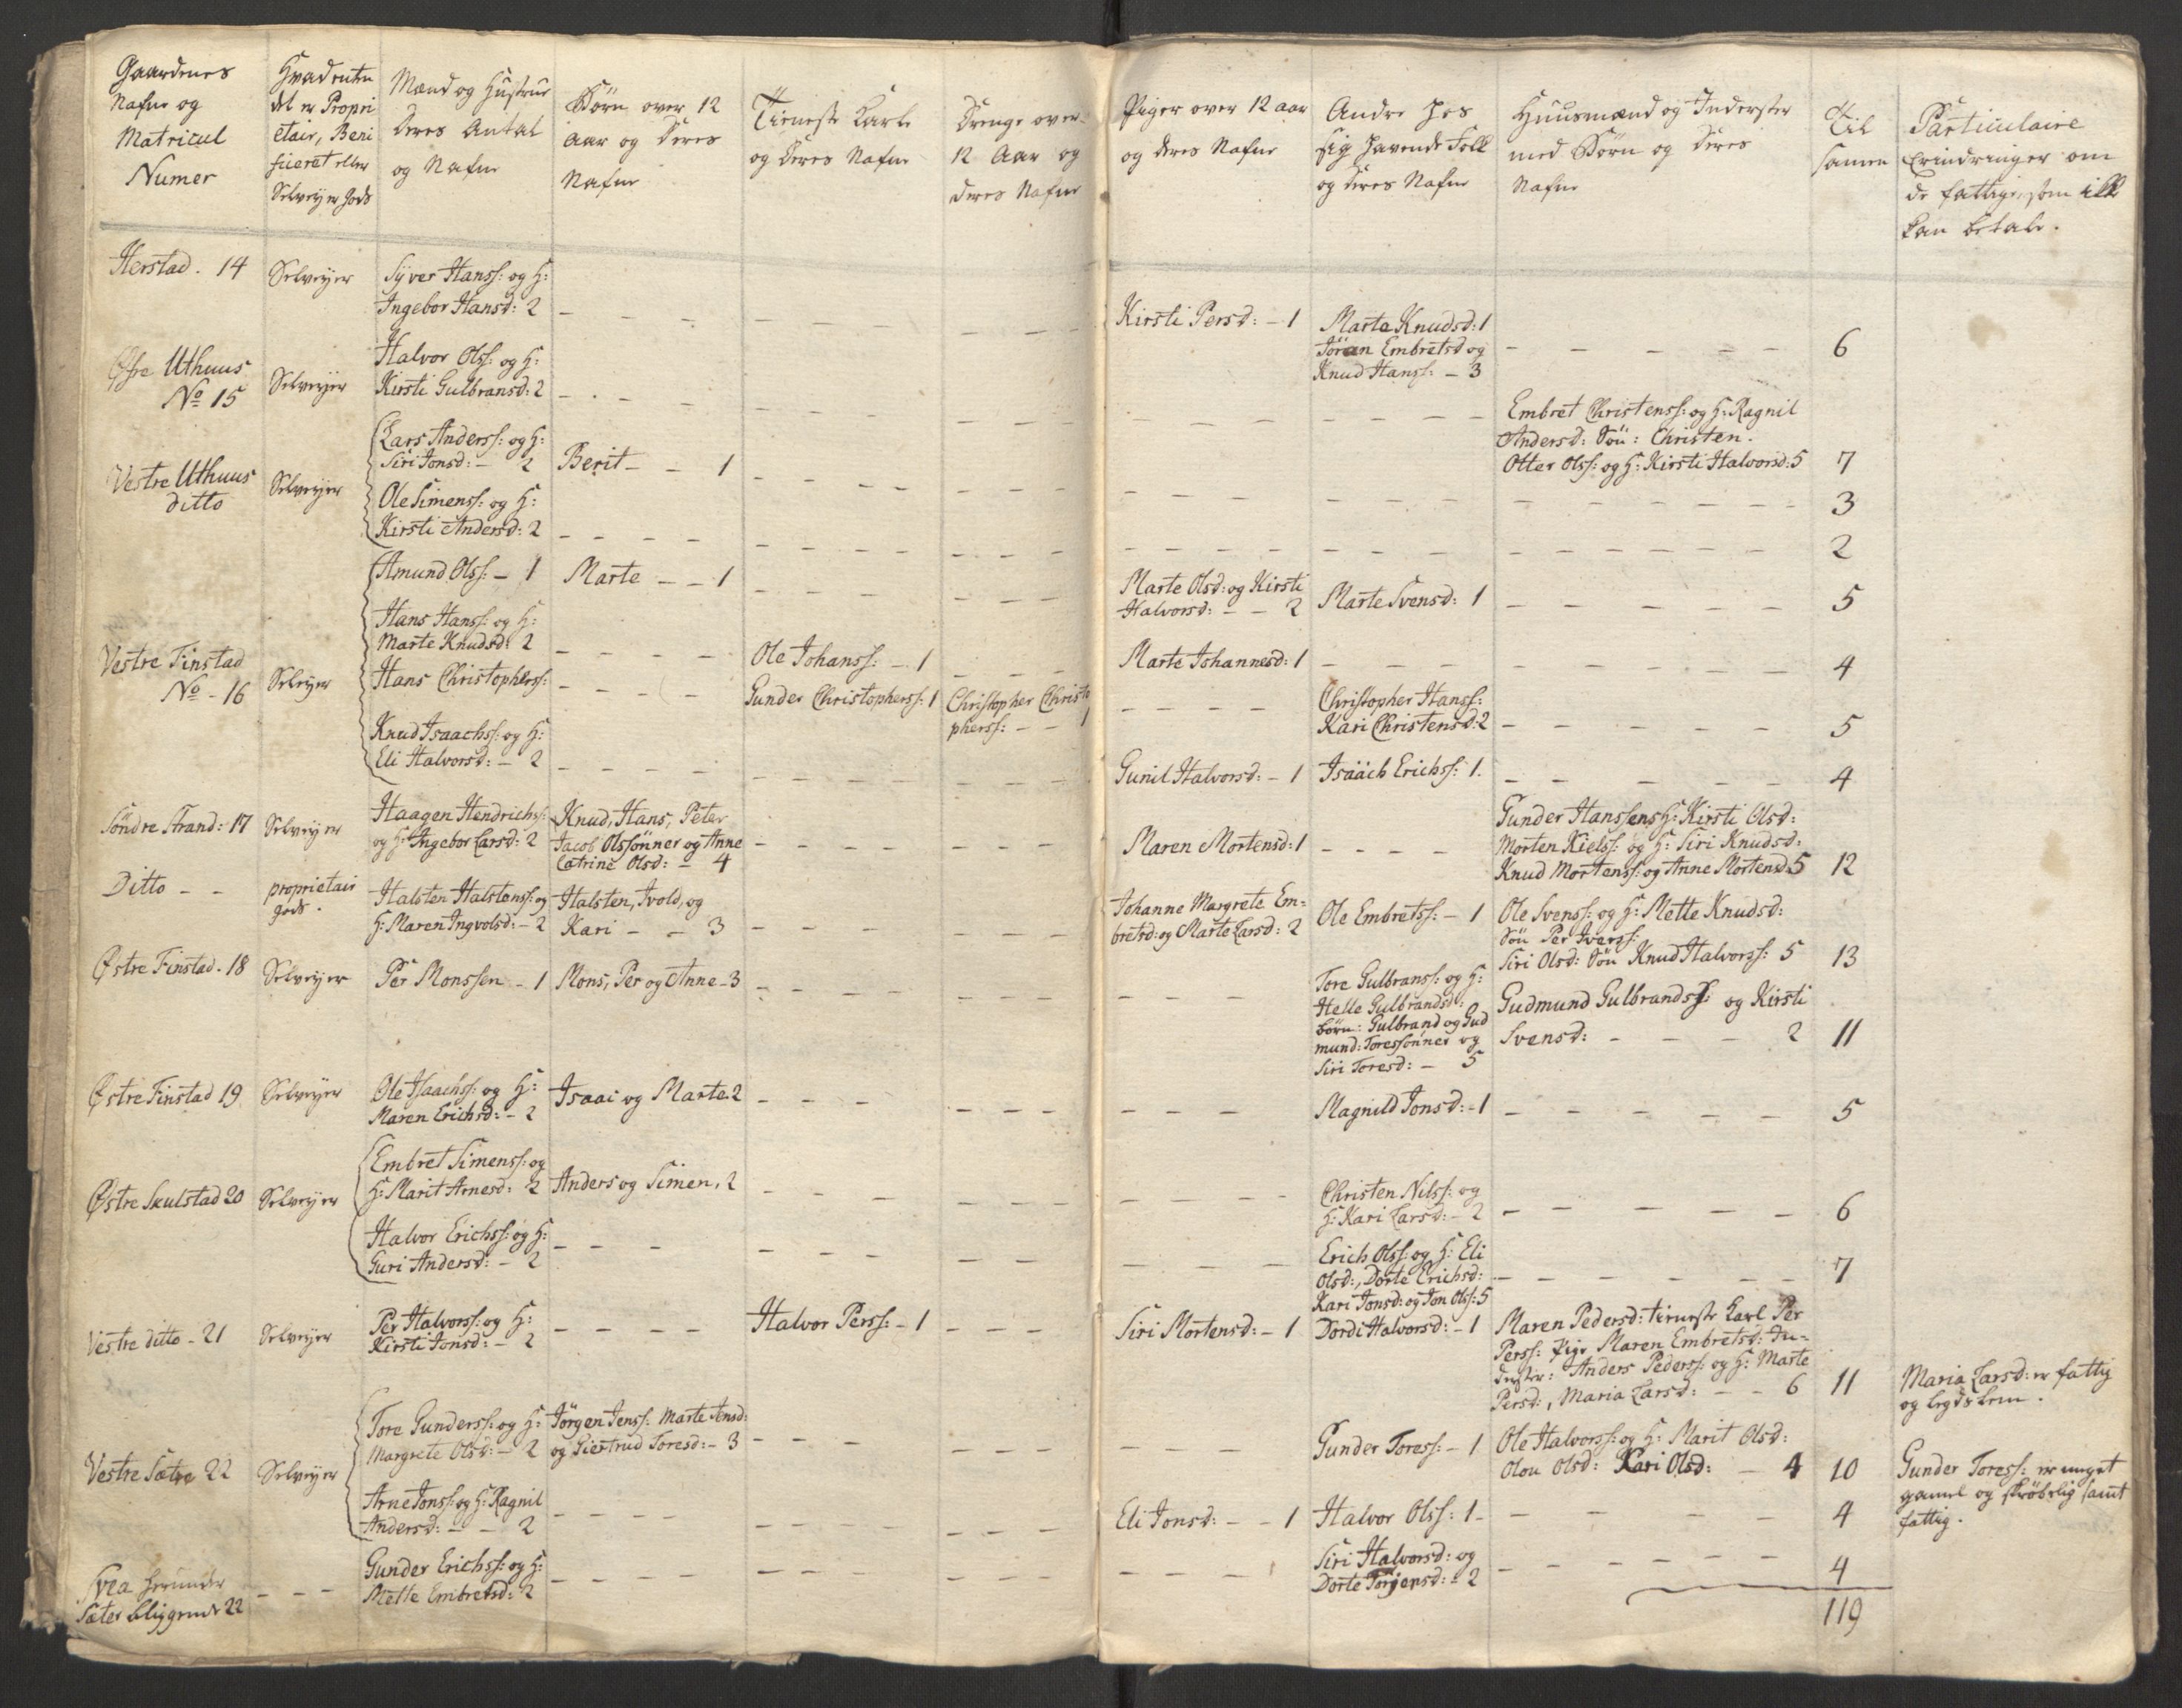 Gaardenes
Nafne og
Matricul
Numer
Hvad enten
det er Propri
etair, Beni
ficeret eller
Selveyer Gods
Mænd og Hustrue
Deres Antal
og Nafne
Börn over 12
Aar og Deres
Nafne
Tieneste Karle
og Deres Nafne
Drenge over
12 Aar og
deres Nafne
Piger over 12 aar
og deres Nafne
Andre hos
sig havende Folk
og Deres Nafne
Huusmænd og Inderster
med Börn og Deres
Nafne
Til
samen
Particulaire
Erindringer om
de fattige, som ikke
kan betale.
Herstad. 14
Selveyer
Syver Hanss: og H:
Ingebor Hansd: 2
Kirsti Persd: - 1
Marte Knudsd: 1
Jöran Embretsd og
Knud Hanss: - 3
6
Øfre Uthuus
No 15
Selveyer
Halvor Olss: og H:
Kirsti Gulbransd: 2
Embret Christenss: og H: Ragnil
Andersd: Sön: Christen.
Otter Olss: og H: Kirsti Halvorsd: 5
7
Vestre Uthuus
ditto
Selveyer
Lars Anderss: og H:
Siri Jonsd: - 2
Berit - - 1
3
Ole Simenss: og H:
Kirsti Andersd: 2
2
Amund Olss: - 1
Marte - - 1
Marte Olsd: og Kirsti
Halvorsd: - - 2
Marte Svensd: 1
5
Hans Hanss: og H:
Marte Knudsd: 2
Ole Johanss: - 1
Marte Johannesd: 1
4
Vestre Finstad
No - 16
Selveyer
Hans Christopherss:
Gunder Christopherss: 1
Christopher Christo
pherss: - - 1
Christopher Hanss:
Kari Christensd: 2
5
Knud Isaachss: og H:
Eli Halvorsd: - 2
Gunil Halvorsd: - 1
Isaach Erichss: 1.
4
Söndre Strand: 17
Selveyer
Haagen Hendrichss:
og H: Ingebor Larsd: 2
Knud, Hans, Peter
Jacob Olssönner og Anne
Catrine Olsd: - 4
Maren Mortensd: 1
Gunder Hanssens H: Kirsti Olsd:
Morten Kielss: og H: Siri Knudsd:
Knud Mortenss: og Anne Mortensd: 5
12
Ditto - -
proprietair
gods.
Halsten Halstenss: og
H: Maren Ingvolsd: - 2
Halsten, Ivold, og
Kari - - 3
Johanne Margrete Em-
bretsd: og Marte Larsd: 2
Ole Embretss: - 1
Ole Svenss: og H: Mette Knudsd:
Sön Per Iverss:
Siri Olsd: Sön Knud Halvorss: 5
13
Østre Finstad. 18
Selveyer
Per Monssen - 1
Mons, Per og Anne - 3
Tore Gulbranss: og H:
Helle Gulbrandsd:
börn: Gulbrand og Gud
mund: Toressönner og
Siri Toresd: - 5
Gudmund Gulbrandss: og Kirsti
Svensd: - - - 2
11
Østre Finstad 19
Selveyer
Ole Isaachss: og H:
Maren Erichsd: - 2
Isaac og Marte. 2
Magnild Jonsd: - 1
5
Østre Skulstad 20
Selveyer
Embret Simenss: og
H: Marit Arnesd: 2
Anders og Simen. 2
Christen Nilss: og
H: Kari Larsd: - 2
6
Halvor Erichss: og H:
Guri Andersd: - 2
Erich Olss: og H: Eli
Olsd:, Dorte Erichsd:
Kari Jonsd: og Jon Olss: 5
7
Vestre ditto - 21
Selveyer
Per Halvorss: og H:
Kirsti Jonsd: - 2
Halvor Perss: - 1
Siri Mortensd: - 1
Dordi Halvorsd: - 1
Maren Pedersd: tieneste karl Per
Perss: pige Maren Embretsd: In-
derster: Anders Pederss: og H: Marte
Persd:, Maria Larsd: - - 6
11
Maria Larsd: er fattig
og legdslem.
Vestre Sætre 22
Selveyer
Tore Gunderss: og H:
Margrete Olsd: - 2
Jörgen Jenss: Marte Jensd:
og Giestrud Toresd: - 3
Gunder Toress: - 1
Ole Halvorss: og H: Marit Olsd:
Olou Olsd: Kari Olsd: - 4
10
Gunder Toress: er meget
gamel og skröbelig samt
fattig.
Arne Jonss: og H: Ragnil
Andersd: - - 2
Eli Jonsd: - - 1
Halvor Olss: 1 -
4
Svea herunder
Sæter beliggende 22
Gunder Erichss: og H:
Mette Embretsd: 2
Siri Halvorsd: og
Dorte Torgersd: - 2
4
119